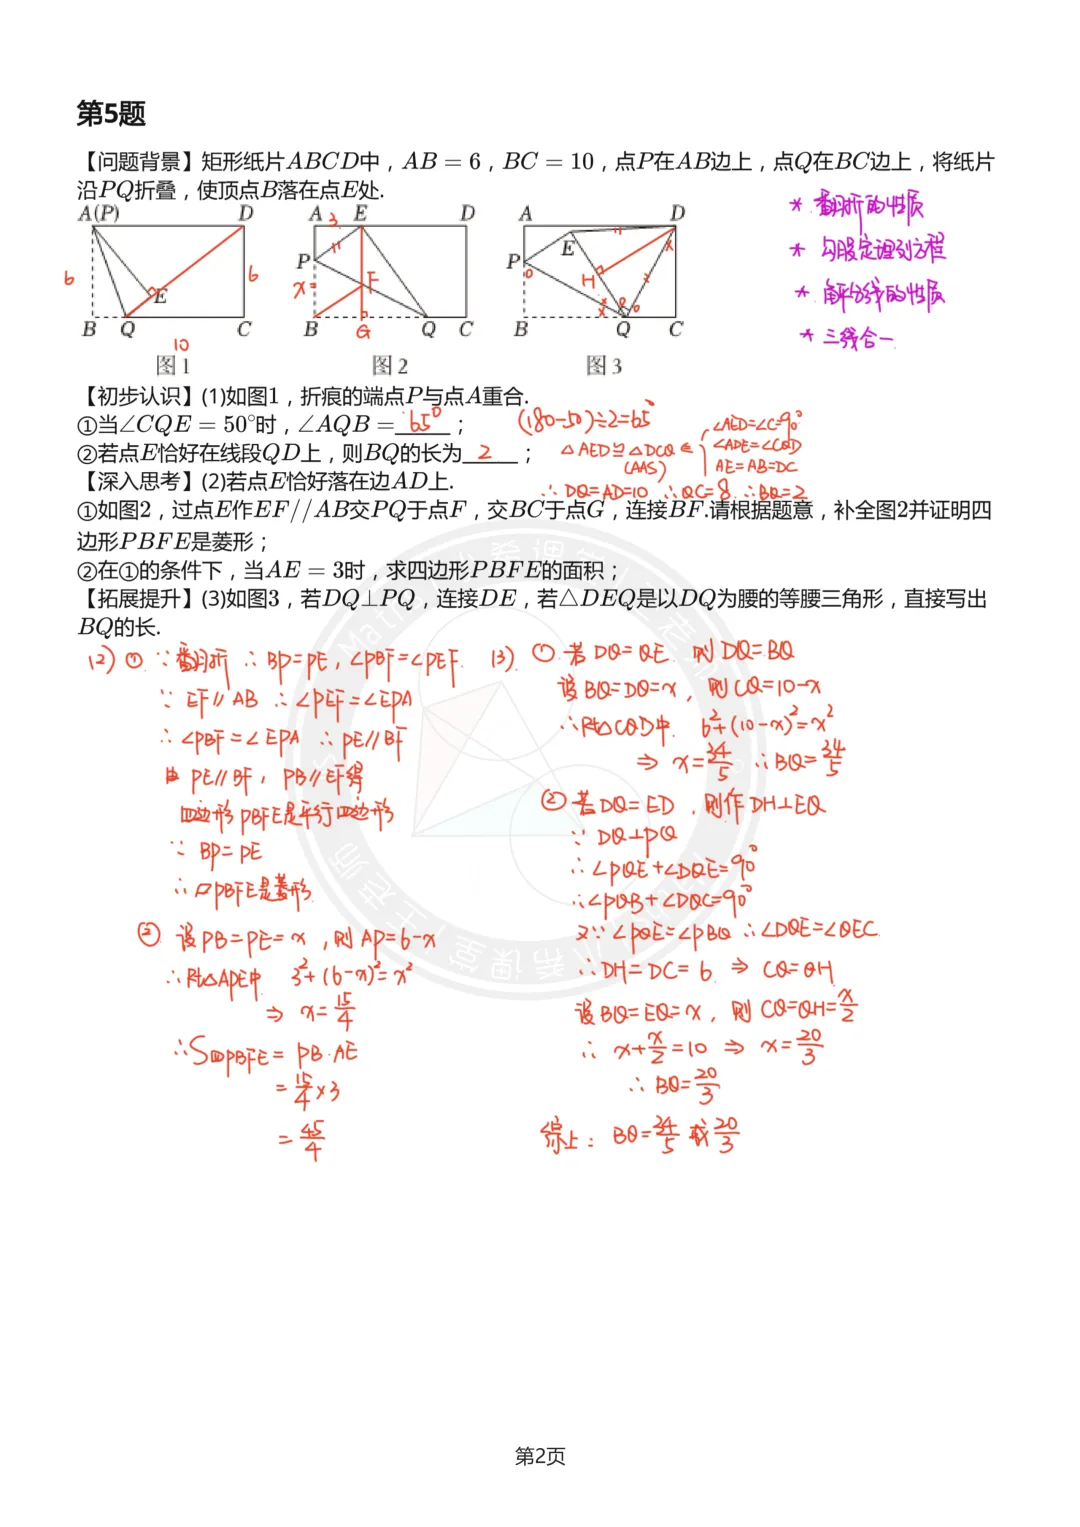 第5题
【问题背景】矩形纸片ABCD中，AB = 6，BC = 10，点P在AB边上，点Q在BC边上，将纸片
沿PQ折叠，使顶点B落在点E处.
A(P) D A 3 E D A D
* 翻折的性质
* 勾股定理列方程
* 角平分线的性质
* 三线合一
6 E 6 P x F P E H
B Q C B G Q C B Q C
10
图1 图2 图3
【初步认识】(1)如图1，折痕的端点P与点A重合.
①当∠CQE = 50°时，∠AQB = 65°； (180-50)÷2=65°
②若点E恰好在线段QD上，则BQ的长为 2 ； △AED≌△DCQ (AAS) ⇐ ∠AED=∠C=90° ∠ADE=∠CQD AE=AB=DC
∴DQ=AD=10 ∴QC=8 ∴BQ=2
【深入思考】(2)若点E恰好落在边AD上.
①如图2，过点E作EF//AB交PQ于点F，交BC于点G，连接BF.请根据题意，补全图2并证明四
边形PBFE是菱形；
②在①的条件下，当AE = 3时，求四边形PBFE的面积；
【拓展提升】(3)如图3，若DQ⊥PQ，连接DE，若△DEQ是以DQ为腰的等腰三角形，直接写出
BQ的长.
(2) ① ∵翻折 ∴BP=PE，∠PBF=∠PEF
∵ EF∥AB ∴∠PEF=∠EPA
∴∠PBF=∠EPA ∴PE∥BF
由 PE∥BF，PB∥EF得
四边形PBFE是平行四边形
∵ BP=PE
∴▱PBFE是菱形
② 设PB=PE=x，则AP=6-x
∴Rt△APE中 3²+(6-x)²=x²
⇒ x=15/4
∴S四PBFE = PB·AE
= 15/4×3
= 45/4
(3) ① 若DQ=QE 则DQ=BQ
设BQ=DQ=x，则CQ=10-x
∴Rt△CQD中 6²+(10-x)²=x²
⇒ x=34/5 ∴BQ=34/5
② 若DQ=ED，则作DH⊥EQ
∵ DQ⊥PQ
∴∠PQE+∠DQE=90°
∴∠PQB+∠DQC=90°
又∵∠PQE=∠PBQ ∴∠DQE=∠QEC
∴DH=DC=6 ⇒ CQ=QH
设BQ=EQ=x，则CQ=QH=x/2
∴ x+x/2=10 ⇒ x=20/3
∴BQ=20/3
综上：BQ=34/5或20/3
第2页